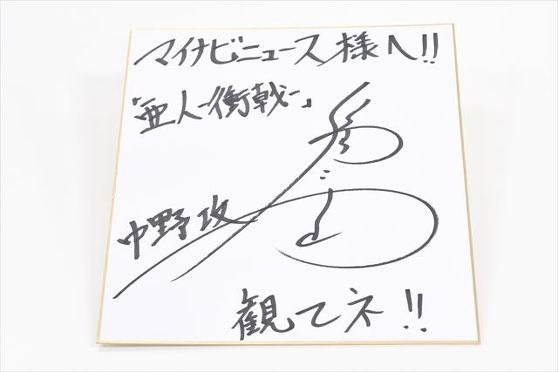 マイナビニュース様へ!!
「亜人-衝戟-」
中野攻
観てネ!!